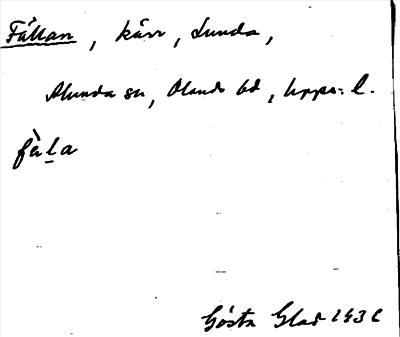 Fällan, kärr, Lunda,
Alunda sn, Olands hd, Upps. l.
fä̀la
Gösta Glad 1936